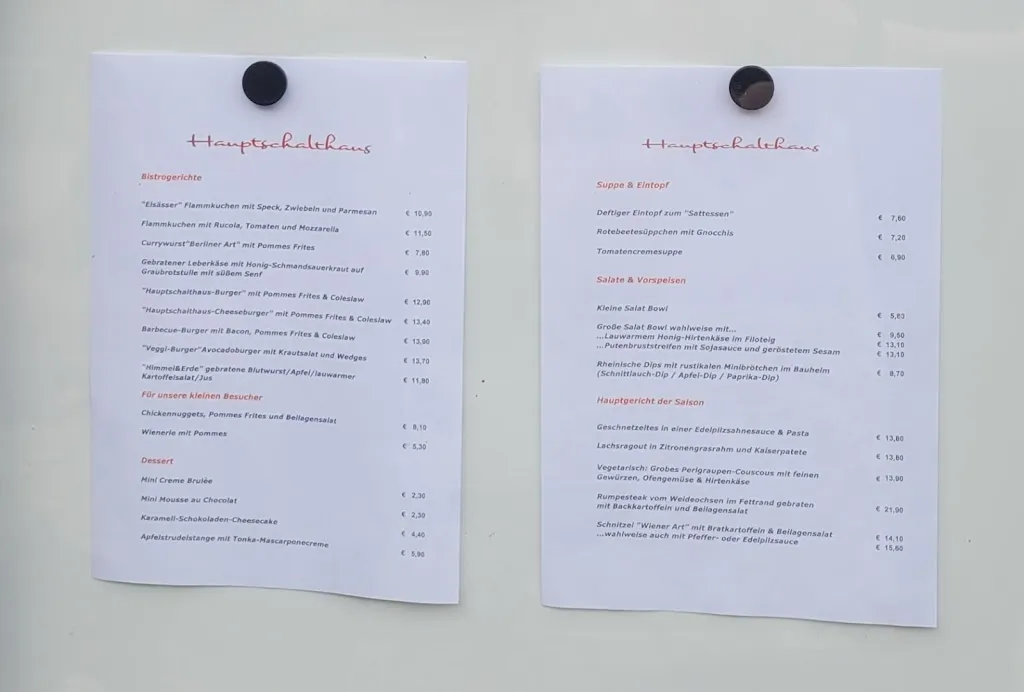 Hauptschalthaus
Bistrogerichte
"Elsässer" Flammkuchen mit Speck, Zwiebeln und Parmesan € 10,90
Flammkuchen mit Rucola, Tomaten und Mozzarella € 11,50
Currywurst"Berliner Art" mit Pommes Frites € 7,80
Gebratener Leberkäse mit Honig-Schmandsauerkraut auf
Graubrotstulle mit süßem Senf € 9,90
"Hauptschalthaus-Burger" mit Pommes Frites & Coleslaw € 12,90
"Hauptschalthaus-Cheeseburger" mit Pommes Frites & Coleslaw € 13,40
Barbecue-Burger mit Bacon, Pommes Frites & Coleslaw € 13,90
"Veggi-Burger"Avocadoburger mit Krautsalat und Wedges € 13,70
"Himmel&Erde" gebratene Blutwurst/Apfel/lauwarmer
Kartoffelsalat/Jus € 11,80
Für unsere kleinen Besucher
Chickennuggets, Pommes Frites und Beilagensalat € 8,10
Wienerle mit Pommes € 5,30
Dessert
Mini Creme Brulèe € 2,30
Mini Mousse au Chocolat € 2,30
Karamell-Schokoladen-Cheesecake € 4,40
Apfelstrudelstange mit Tonka-Mascarponecreme € 5,90
Hauptschalthaus
Suppe & Eintopf
Deftiger Eintopf zum "Sattessen" € 7,60
Rotebeetesüppchen mit Gnocchis € 7,20
Tomatencremesuppe € 6,90
Salate & Vorspeisen
Kleine Salat Bowl € 5,80
Große Salat Bowl wahlweise mit... € 9,50
...Lauwarmem Honig-Hirtenkäse im Filoteig € 13,10
...Putenbruststreifen mit Sojasauce und geröstetem Sesam € 13,10
Rheinische Dips mit rustikalen Minibrötchen im Bauheim
(Schnittlauch-Dip / Apfel-Dip / Paprika-Dip) € 8,70
Hauptgericht der Saison
Geschnetzeltes in einer Edelpilzsahnesauce & Pasta € 13,80
Lachsragout in Zitronengrasrahm und Kaiserpatete € 13,80
Vegetarisch: Grobes Perlgraupen-Couscous mit feinen
Gewürzen, Ofengemüse & Hirtenkäse € 13,90
Rumpesteak vom Weideochsen im Fettrand gebraten
mit Backkartoffeln und Beilagensalat € 21,90
Schnitzel "Wiener Art" mit Bratkartoffeln & Beilagensalat € 14,10
...wahlweise auch mit Pfeffer- oder Edelpilzsauce € 15,60